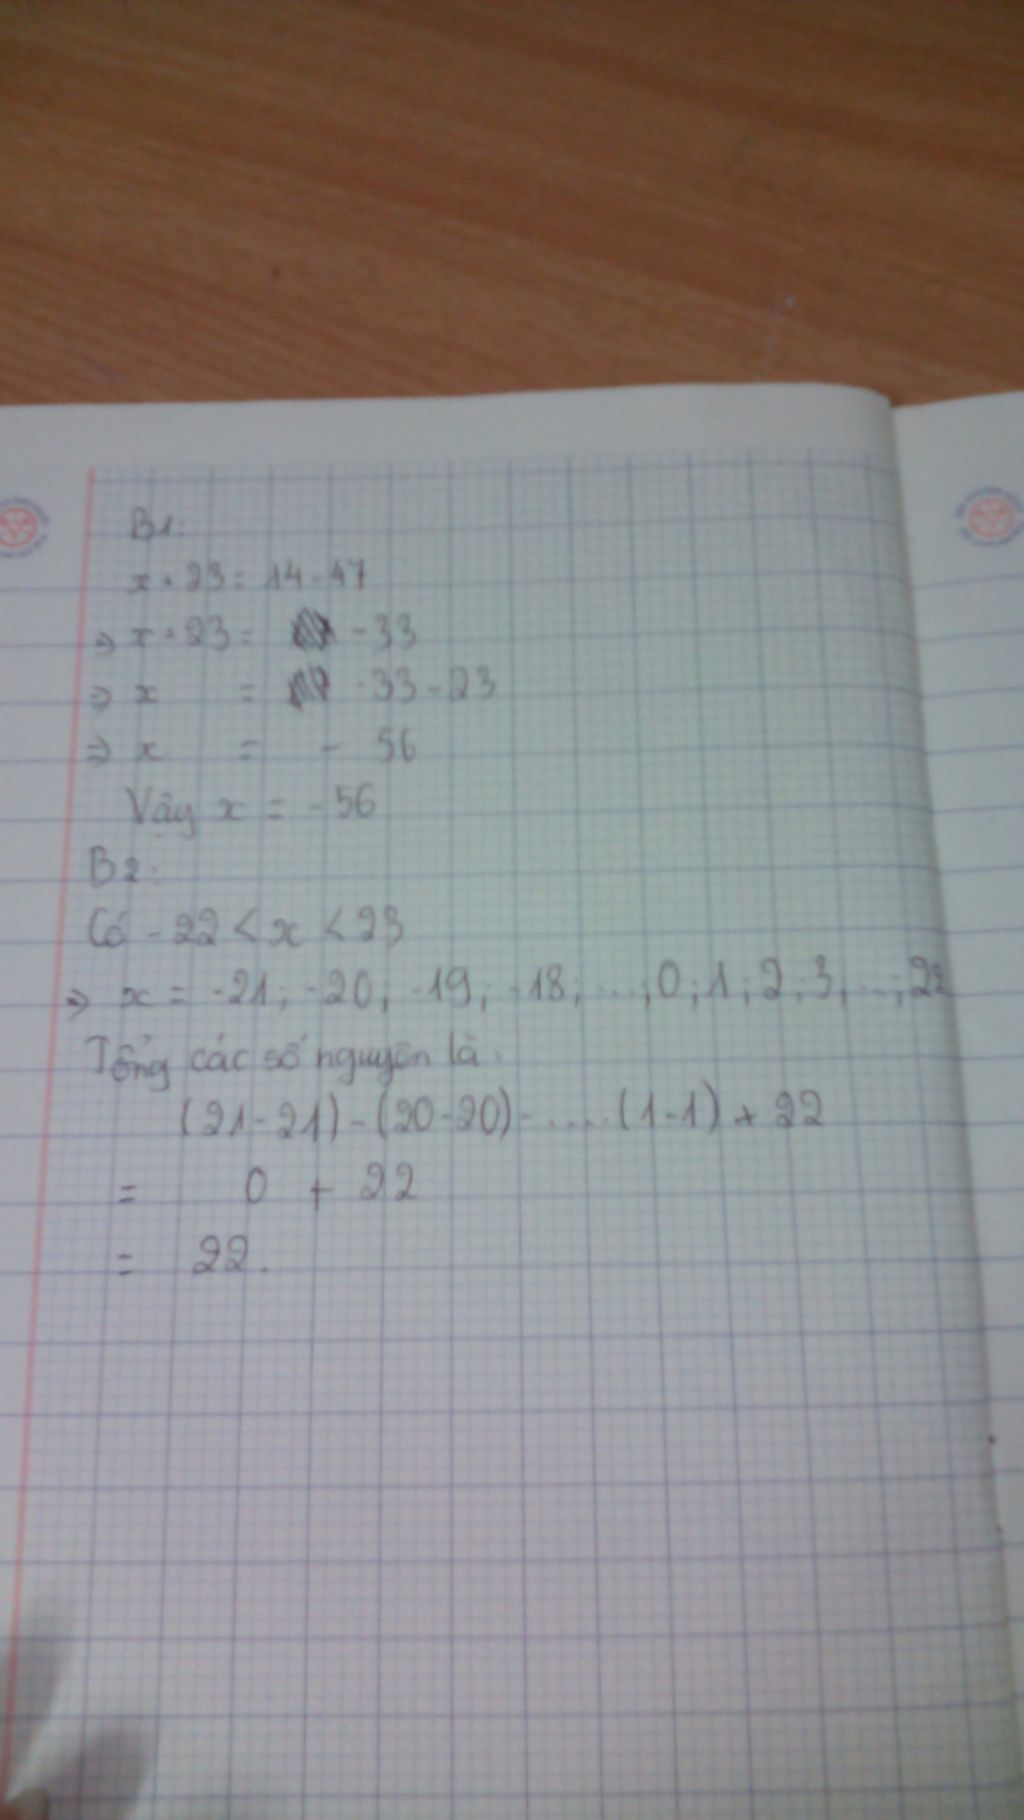 B1:
x + 23 = 14 - 47
=> x + 23 = - 33
=> x = - 33 - 23
=> x = - 56
Vậy x = - 56
B2:
Có - 22 < x < 23
=> x = -21; -20; -19; -18; ...; 0; 1; 2; 3; ...; 22
Tổng các số nguyên là:
(21-21) - (20-20) - ..... (1-1) + 22
= 0 + 22
= 22.